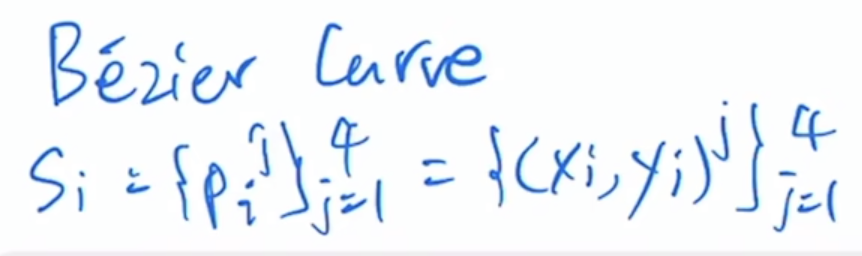 Bézier Curve
Si = {p_i^j}_{j=1}^4 = {(xi, yi)^j}_{j=1}^4